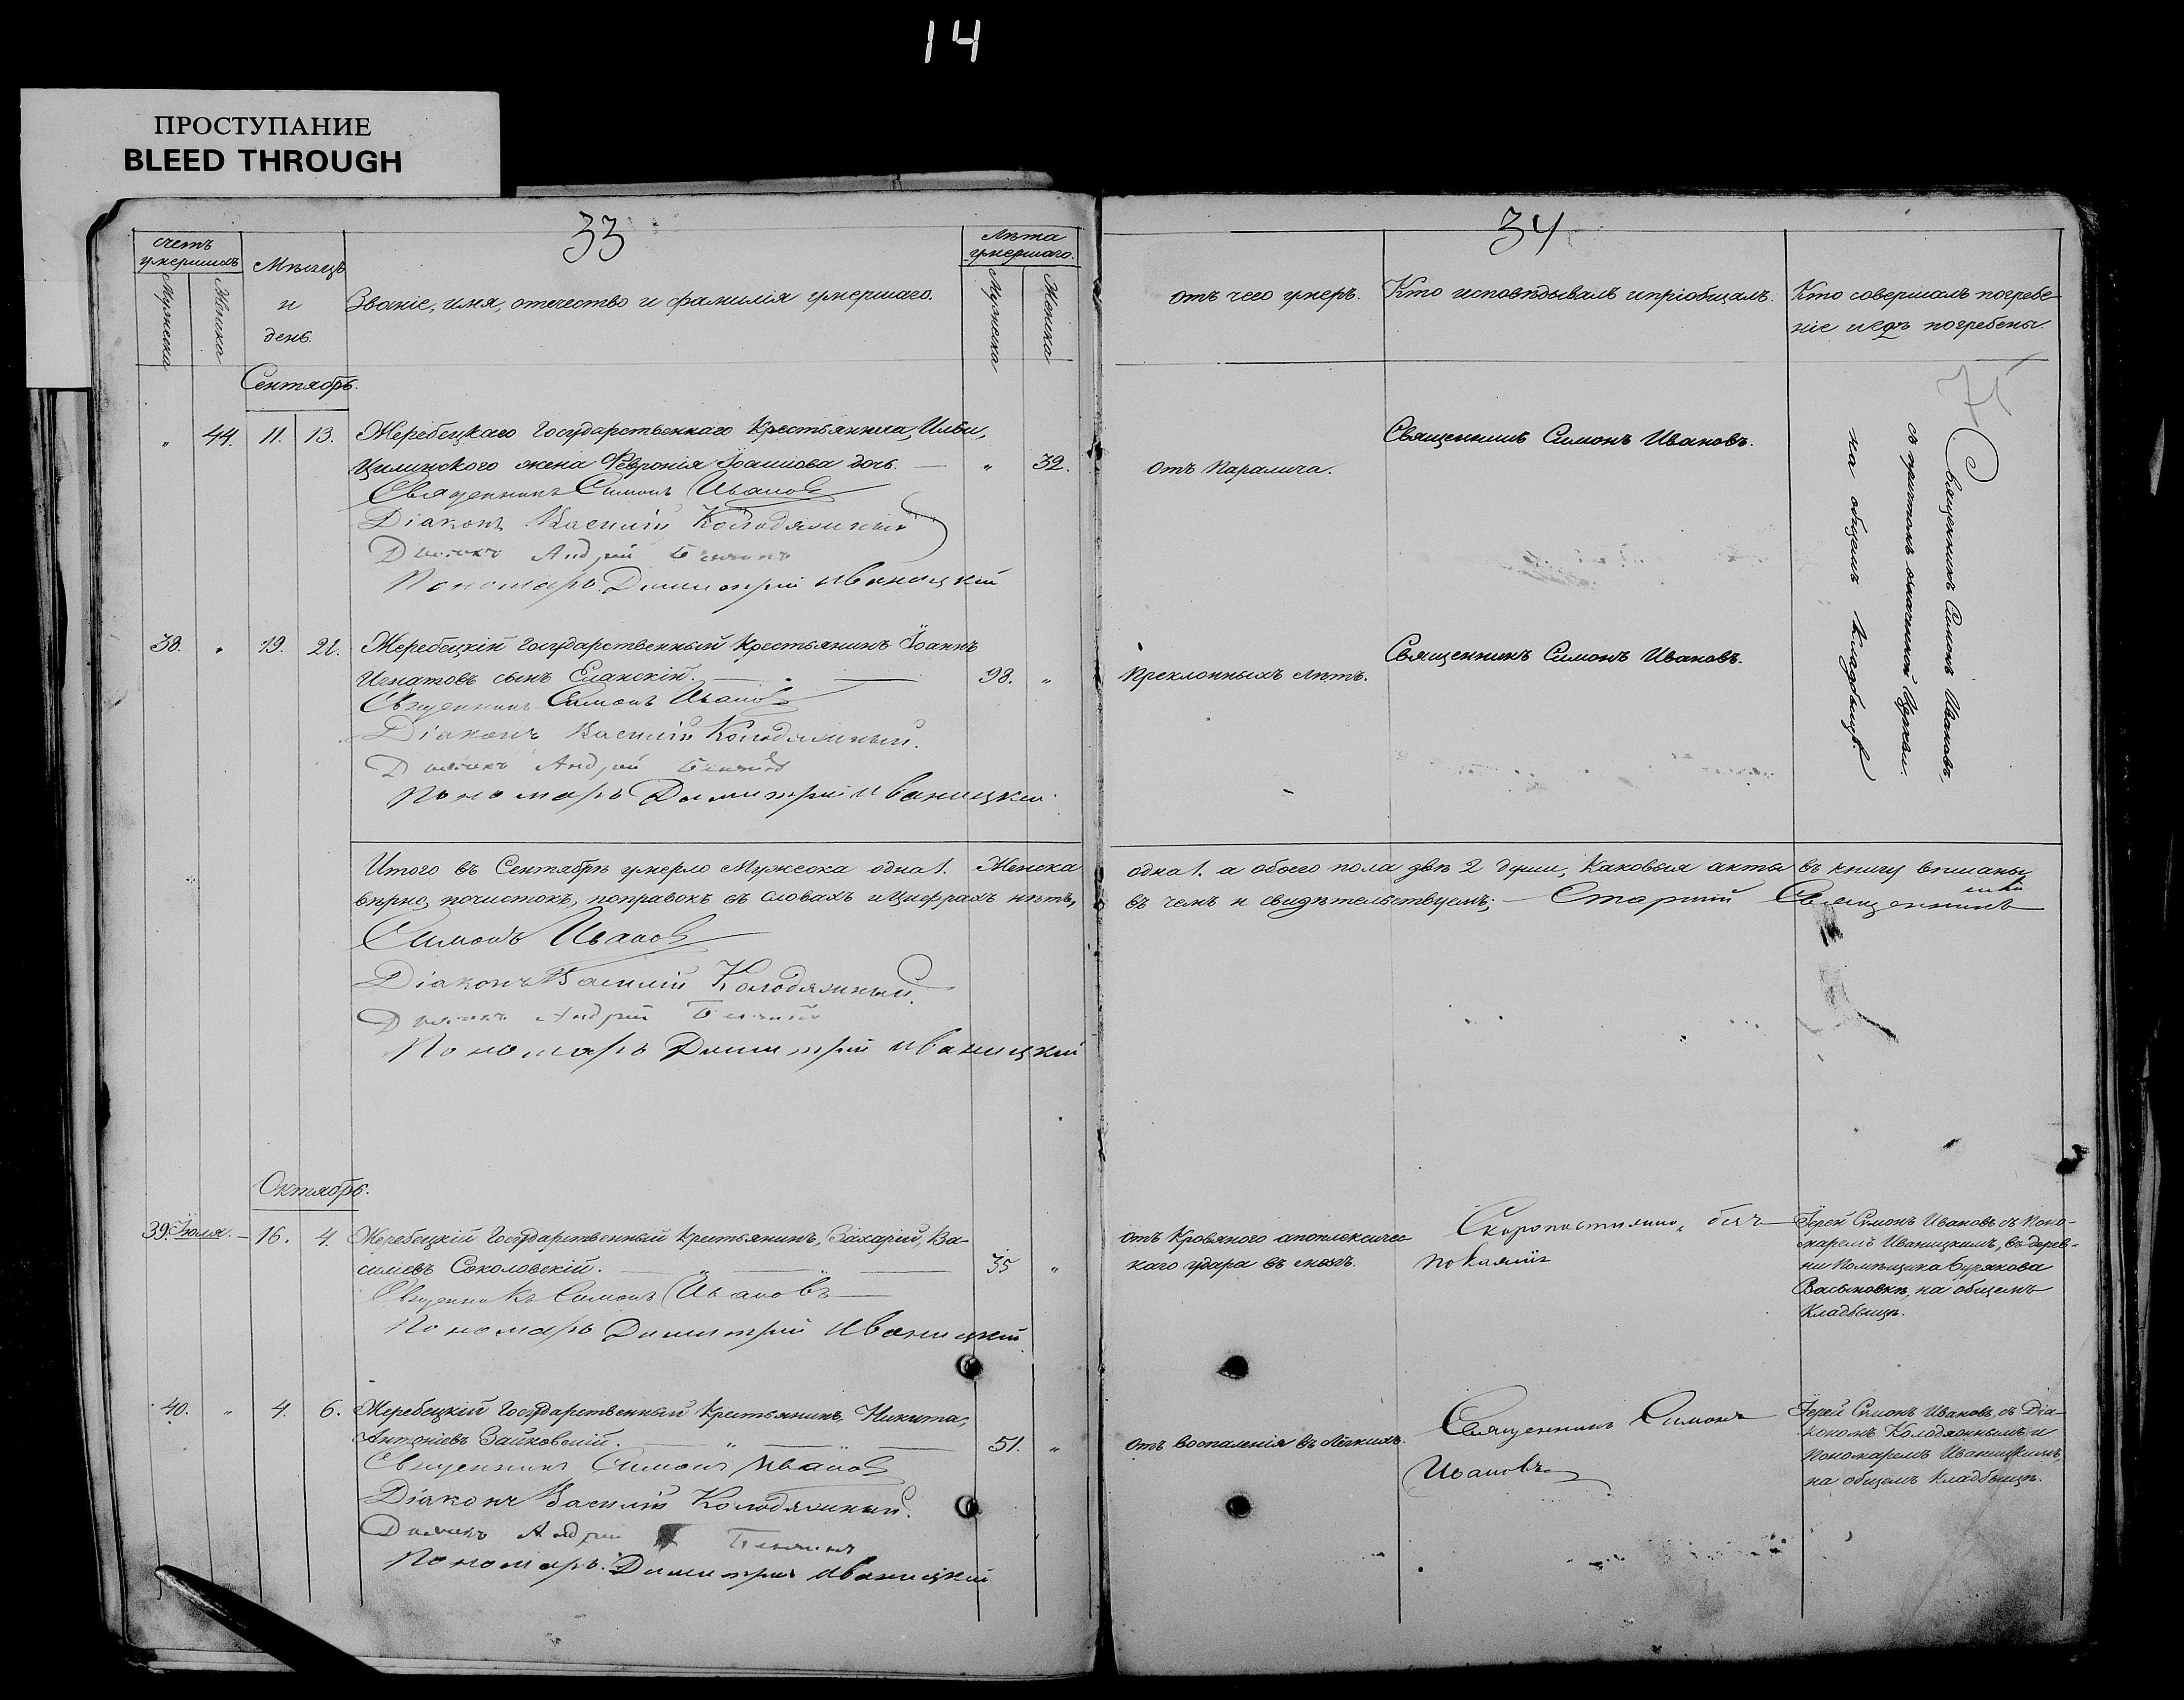 14
ПРОСТУПАНИЕ
BLEED THROUGH
33
счетъ умершихъ
Мужеска
Женска
Мѣсяцъ и день.
Званіе, имя, отечество и фамилія умершаго.
Лѣта умершаго.
Мужеска
Женска
Сентябрь.
" 44. 11. 13. Жеребецкаго Государственнаго Крестьянина, Ильи,
Цилинского жена Февронія Іоаннова дочь. — " 32.
Священникъ Симонъ Ивановъ
Діаконъ Василій Колодяжный
Андрей
Пономарь Димитрій Иваницкій
38. " 19. 21. Жеребецкій Государственный Крестьянинъ Іоаннъ
Игнатовъ сынъ Еланскій. — 98. "
Священникъ Симонъ Ивановъ
Діаконъ Василій Колодяжный.
Андрей
Пономарь Димитрій Иваницкій.
Итого въ Сентябрѣ умерло Мужеска одна 1. Женска
вѣрно, почистокъ, поправокъ въ словахъ и Цифрахъ нѣтъ,
Симонъ Ивановъ
Діаконъ Василій Колодяжный.
Андрей
Пономарь Димитрій Иваницкій
Октябрь.
39. Іюля. — 16. 4. Жеребецкій Государственный Крестьянинъ, Захарій, Ва-
силіевъ Соколовскій. — " — " — 35 "
Священникъ Симонъ Ивановъ
Пономарь Димитрій Иваницкій.
40. " 4. 6. Жеребецкій Государственный Крестьянинъ, Никита,
Антоніевъ Зайковскій. — " — " — 51. "
Священникъ Симонъ Ивановъ
Діаконъ Василій Колодяжный.
Андрей
Пономарь. Димитрій Иваницкій
34
отъ чего умеръ.
Кто исповѣдывалъ и пріобщалъ.
Кто совершалъ погребе-
ніе и гдѣ погребены.
75
отъ Паралича.
Священникъ Симонъ Ивановъ.
Священникъ Симонъ Ивановъ,
съ причтомъ означенной Церкви.
на общемъ кладбищѣ
Преклонныхъ лѣтъ.
Священникъ Симонъ Ивановъ.
одна 1. а обоего пола двѣ 2 души, Каковыя акты въ книгу вписаны
въ чемъ и свидѣтельствуемъ; — Старшій Священникъ
отъ Кровяного апоплексичес-
каго удара въ мозгъ.
Скоропостижно, безъ
покаянія
Іерей Симонъ Ивановъ съ Поно-
маремъ Иваницкимъ, въ дерев-
ни Помѣщика Бурякова
Васьковкѣ, на общемъ
Кладбищѣ.
отъ воспаленія въ Лёгкихъ.
Священникъ Симонъ
Ивановъ
Іерей Симонъ Ивановъ, съ Діа-
кономъ Колодяжнымъ и
Пономаремъ Иваницкимъ,
на общемъ Кладбищѣ.